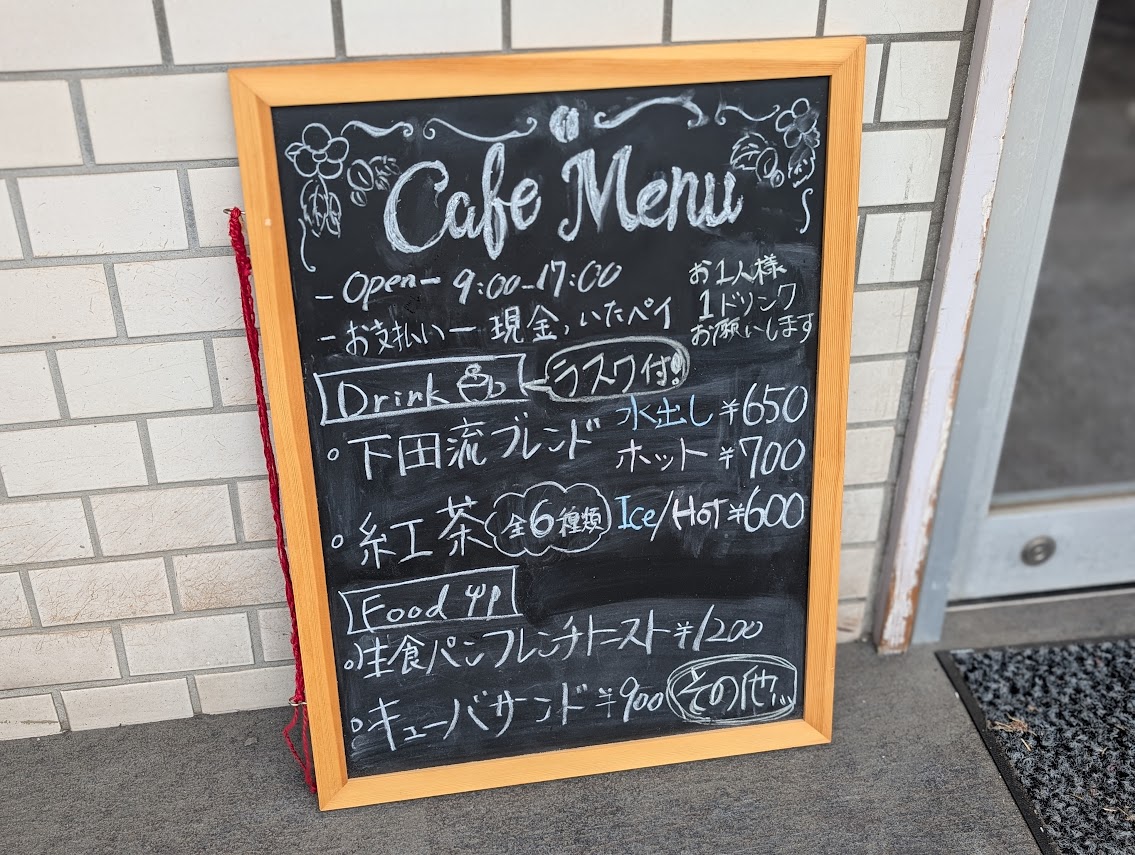 Cafe Menu
- Open - 9:00-17:00
- お支払い - 現金、いたペイ
お1人様
1ドリンク
お願いします
Drink
ラスク付!
。下田流ブレンド 水出し ¥650
ホット ¥700
。紅茶 全6種類 Ice/Hot ¥600
Food
。生食パンフレンチトースト ¥1200
。キューバサンド ¥900 その他...